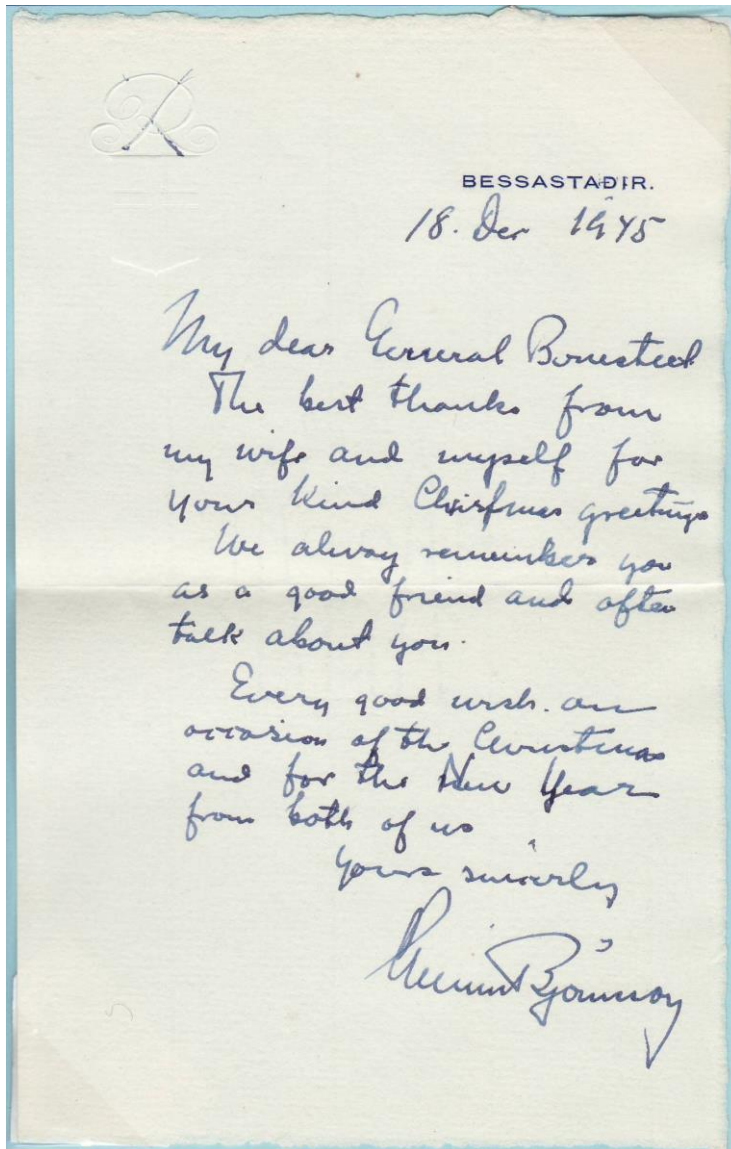 BESSASTAÐIR.
18. Dec 1945
My dear General Bonesteel
The best thanks from
my wife and myself for
your kind Chirstmas greetings
We alway remember you
as a good friend and often
talk about you.
Every good wish. on
occasion of the Christmas
and for the New Year
from both of us
Yours sincerly
Sveinn Björnsson